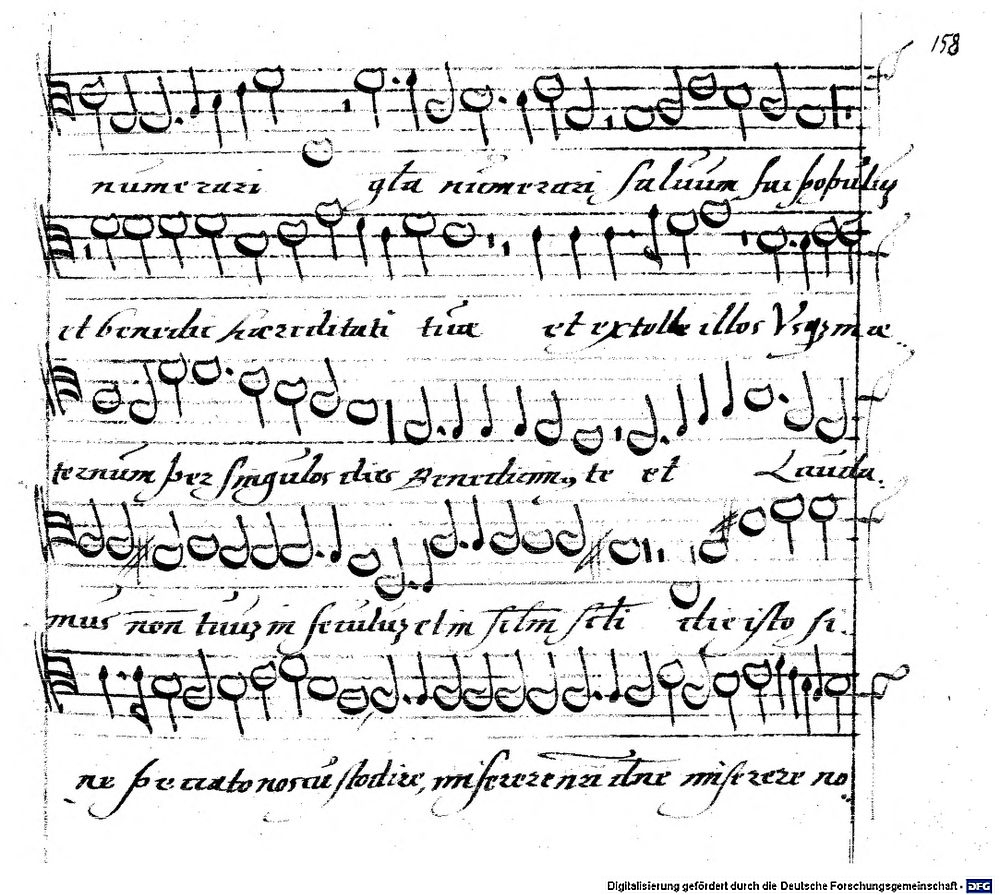 158
numerari gl̃a numerari saluum fac populũ
et benedic hæreditati tuæ et extolle illos Vsqꝫ in æ.
ternum per singulos dies Benedicimꝰ te et Lauda.
mus nomẽ tuuꝫ in seculuꝫ et in sc̃lm sc̃li die isto si.
ne peccato nos custodire, miserere nr̃i dñe miserere no
Digitalisierung gefördert durch die Deutsche Forschungsgemeinschaft - DFG